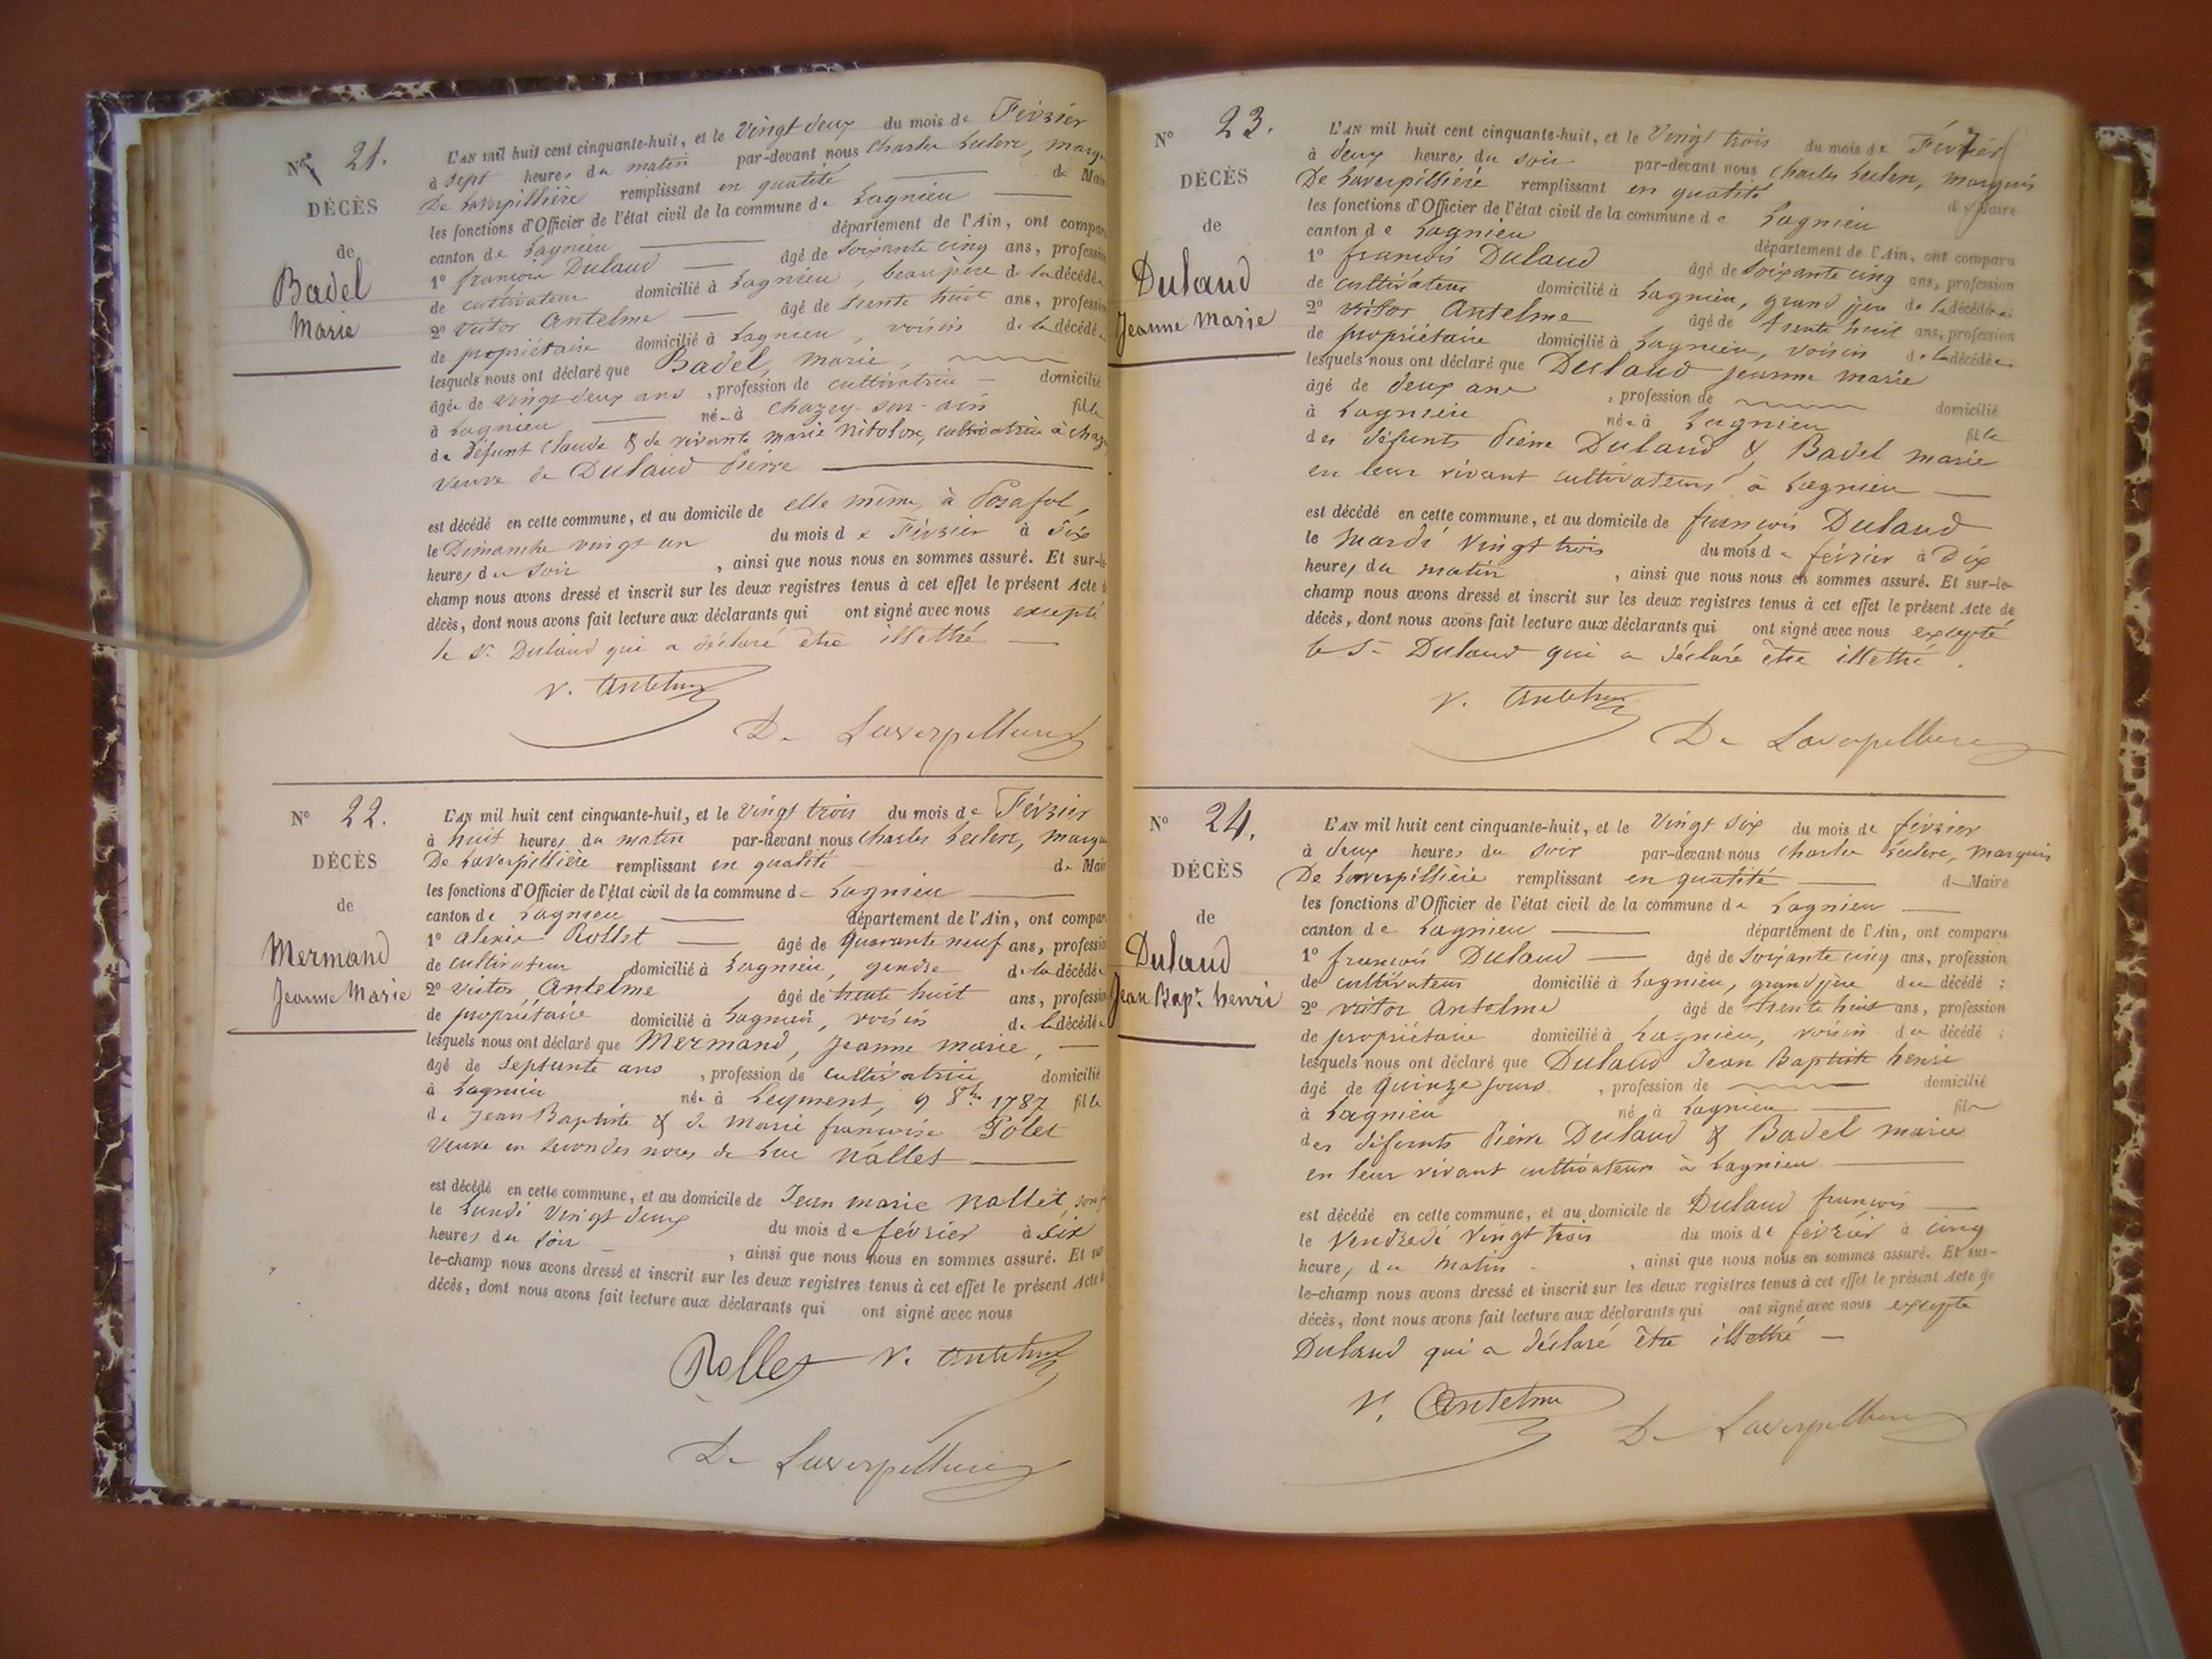 N° 21.
DÉCÈS
de
Badel
Marie
L'AN mil huit cent cinquante-huit, et le Vingt deux du mois de Février
à Sept heures du matin par-devant nous Charles Leclerc, marqu
De Laverpillière remplissant en qualité de Mai
les fonctions d'Officier de l'état civil de la commune de Lagnieu
canton de Lagnieu département de l'Ain, ont compar
1° françois Dulaud âgé de Soixante cinq ans, professio
de cultivateur domicilié à Lagnieu, beaupère de la décédée
2° Victor Antelme âgé de trente huit ans, professio
de propriétaire domicilié à Lagnieu, voisin de la décédée
lesquels nous ont déclaré que Badel, marie,
âgée de vingt deux ans, profession de cultivatrice domicilié
à Lagnieu née à Chazey-sur-ain fille
de défunt Claude & de vivante Marie cultivatrice à Chaz
veuve de Dulaud Pierre
est décédé en cette commune, et au domicile de elle même, à Posafol,
le Dimanche vingt un du mois de Février à Six
heures du Soir, ainsi que nous nous en sommes assuré. Et sur-le-
champ nous avons dressé et inscrit sur les deux registres tenus à cet effet le présent Acte d
décès, dont nous avons fait lecture aux déclarants qui ont signé avec nous excepté
le Sr Dulaud qui a déclaré être illettré
V. Antelme
De Laverpilliere
N° 22.
DÉCÈS
de
Mermand
Jeanne Marie
L'AN mil huit cent cinquante-huit, et le vingt trois du mois de Février
à huit heures du matin par-devant nous Charles Leclerc, marqu
De Laverpillière remplissant en qualité de Mair
les fonctions d'Officier de l'état civil de la commune de Lagnieu
canton de Lagnieu département de l'Ain, ont compar
1° alexis Rollet âgé de quarante neuf ans, professio
de cultivateur domicilié à Lagnieu, gendre de la décédée
2° Victor Antelme âgé de trente huit ans, professio
de propriétaire domicilié à Lagnieu, voisin de la décédée
lesquels nous ont déclaré que Mermand, Jeanne marie,
âgé de Septante ans, profession de cultivatrice domicilié
à Lagnieu née à Leyment, 9 8bre 1787 fille
de Jean Baptiste & de Marie françoise Polet
veuve en secondes noces de Luc Nallet
est décédé en cette commune, et au domicile de Jean marie Nallet, son f
le Lundi Vingt deux du mois de février à Six
heures du soir, ainsi que nous nous en sommes assuré. Et sur
le-champ nous avons dressé et inscrit sur les deux registres tenus à cet effet le présent Acte d
décès, dont nous avons fait lecture aux déclarants qui ont signé avec nous
Rollet V. Antelme
De Laverpilliere
N° 23.
DÉCÈS
de
Dulaud
Jeanne Marie
L'AN mil huit cent cinquante-huit, et le Vingt trois du mois de Février
à deux heures du soir par-devant nous Charles Leclerc, marquis
De Laverpillière remplissant en qualité de Maire
les fonctions d'Officier de l'état civil de la commune de Lagnieu
canton de Lagnieu département de l'Ain, ont comparu
1° françois Dulaud âgé de Soixante cinq ans, profession
de cultivateur domicilié à Lagnieu, grand père de la décédée
2° Victor Antelme âgé de trente huit ans, profession
de propriétaire domicilié à Lagnieu, voisin de la décédée
lesquels nous ont déclaré que Dulaud Jeanne Marie
âgé de deux ans, profession de domicilié
à Lagnieu née à Lagnieu fille
des défunts Pierre Dulaud & Badel marie
en leur vivant cultivateurs à Lagnieu
est décédé en cette commune, et au domicile de françois Dulaud
le Mardi Vingt trois du mois de février à Dix
heures du matin, ainsi que nous nous en sommes assuré. Et sur-le-
champ nous avons dressé et inscrit sur les deux registres tenus à cet effet le présent Acte de
décès, dont nous avons fait lecture aux déclarants qui ont signé avec nous excepté
le Sr Dulaud qui a déclaré être illettré.
V. Antelme
De Laverpilliere
N° 24.
DÉCÈS
de
Dulaud
Jean Bapte henri
L'AN mil huit cent cinquante-huit, et le Vingt Six du mois de février
à deux heures du soir par-devant nous Charles Leclerc, marquis
De Laverpillière remplissant en qualité de Maire
les fonctions d'Officier de l'état civil de la commune de Lagnieu
canton de Lagnieu département de l'Ain, ont comparu
1° françois Dulaud âgé de Soixante cinq ans, profession
de cultivateur domicilié à Lagnieu, grand père du décédé ;
2° Victor Antelme âgé de trente huit ans, profession
de propriétaire domicilié à Lagnieu, voisin du décédé :
lesquels nous ont déclaré que Dulaud Jean Baptiste henri
âgé de quinze jours, profession de domicilié
à Lagnieu né à Lagnieu fils
des défunts Pierre Dulaud & Badel marie
en leur vivant cultivateurs à Lagnieu
est décédé en cette commune, et au domicile de Dulaud françois
le Vendredi Vingt trois du mois de février à cinq
heures du matin, ainsi que nous nous en sommes assuré. Et sur-
le-champ nous avons dressé et inscrit sur les deux registres tenus à cet effet le présent Acte de
décès, dont nous avons fait lecture aux déclarants qui ont signé avec nous excepté
Dulaud qui a déclaré être illettré
V. Antelme
De Laverpilliere